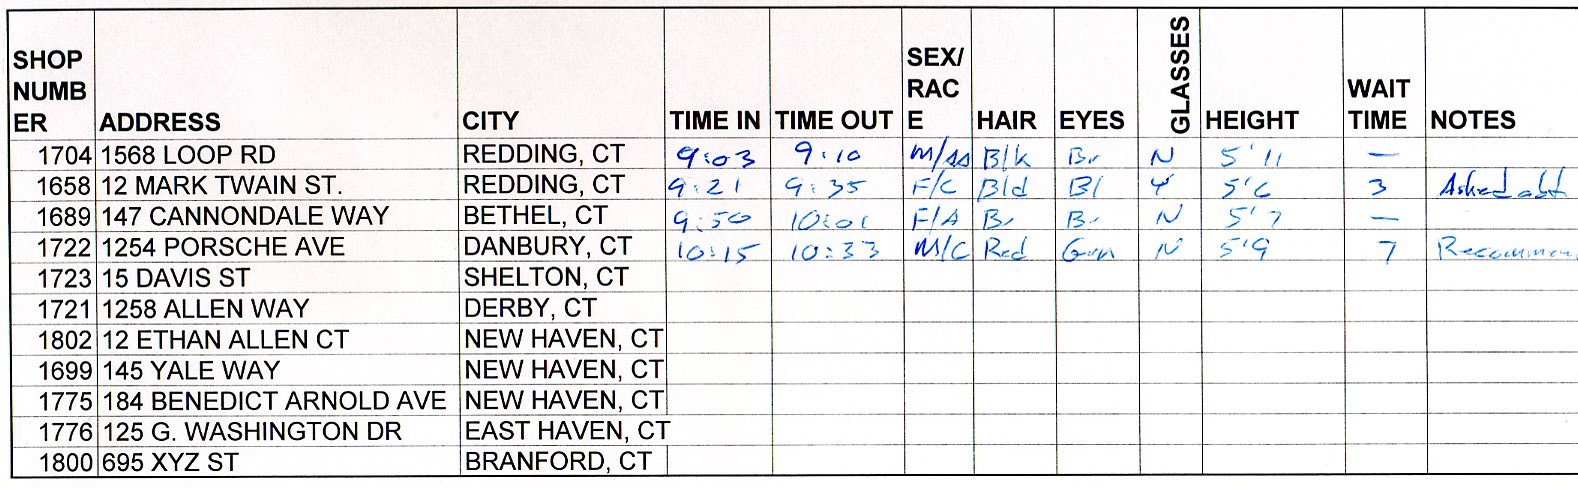 SHOP NUMB ER ADDRESS CITY TIME IN TIME OUT SEX/ RAC E HAIR EYES GLASSES HEIGHT WAIT TIME NOTES
1704 1568 LOOP RD REDDING, CT 9:03 9:10 M/As Blk Br N 5'11 —
1658 12 MARK TWAIN ST. REDDING, CT 9:21 9:35 F/C Bld Bl Y 5'6 3 Asked abt
1689 147 CANNONDALE WAY BETHEL, CT 9:50 10:01 F/A Br Br N 5'7 —
1722 1254 PORSCHE AVE DANBURY, CT 10:15 10:33 M/C Red Grn N 5'9 7 Recommen
1723 15 DAVIS ST SHELTON, CT
1721 1258 ALLEN WAY DERBY, CT
1802 12 ETHAN ALLEN CT NEW HAVEN, CT
1699 145 YALE WAY NEW HAVEN, CT
1775 184 BENEDICT ARNOLD AVE NEW HAVEN, CT
1776 125 G. WASHINGTON DR EAST HAVEN, CT
1800 695 XYZ ST BRANFORD, CT